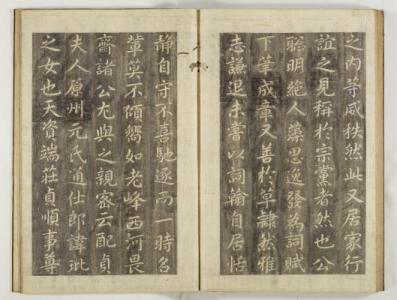 之内等咸秩然此又居家行
誼之見稱於宗黨者然也公
聪明絶人藻思逸發為詞賦
下筆成章又善於草隷然雅
志謙退未嘗以詞翰自居恬
静自守不喜馳逐而一時名
輩莫不傾嚮如老峰西河畏
齋諸公尤與之親密云配貞
夫人原州元氏通仕郎諱玭
之女也天資端莊貞順事尊